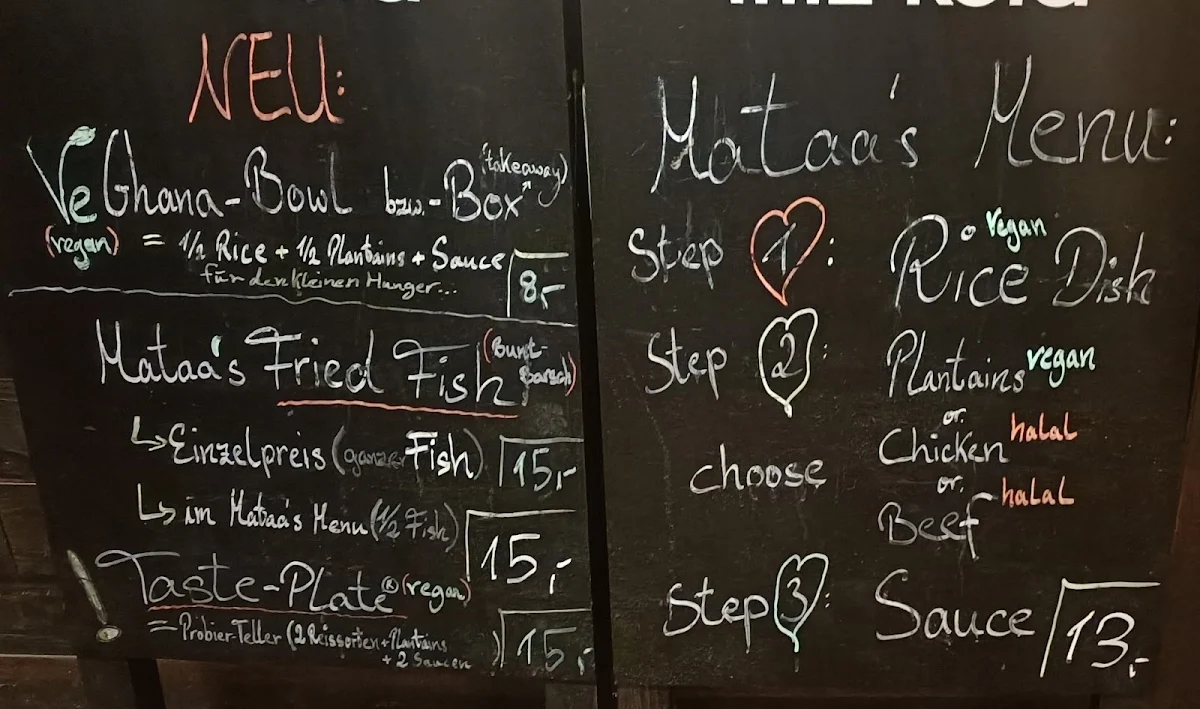 NEU:
VeGhana-Bowl bzw.-Box (takeaway)
(vegan) = 1/2 Rice + 1/2 Plantains + Sauce
für den kleinen Hunger... 8,-
Mataa's Fried Fish (Bunt-
barsch)
↳ Einzelpreis (ganzer Fish) 15,-
↳ im Mataa's Menu (1/2 Fish) 15,-
! Taste-Plate® (vegan)
= Probier-Teller (2 Reissorten + Plantains
+ 2 Saucen) 15,-
Mataa's Menu:
Step 1: Rice Dish vegan
Step 2: Plantains vegan
or
choose Chicken halal
or
Beef halal
Step 3: Sauce 13,-